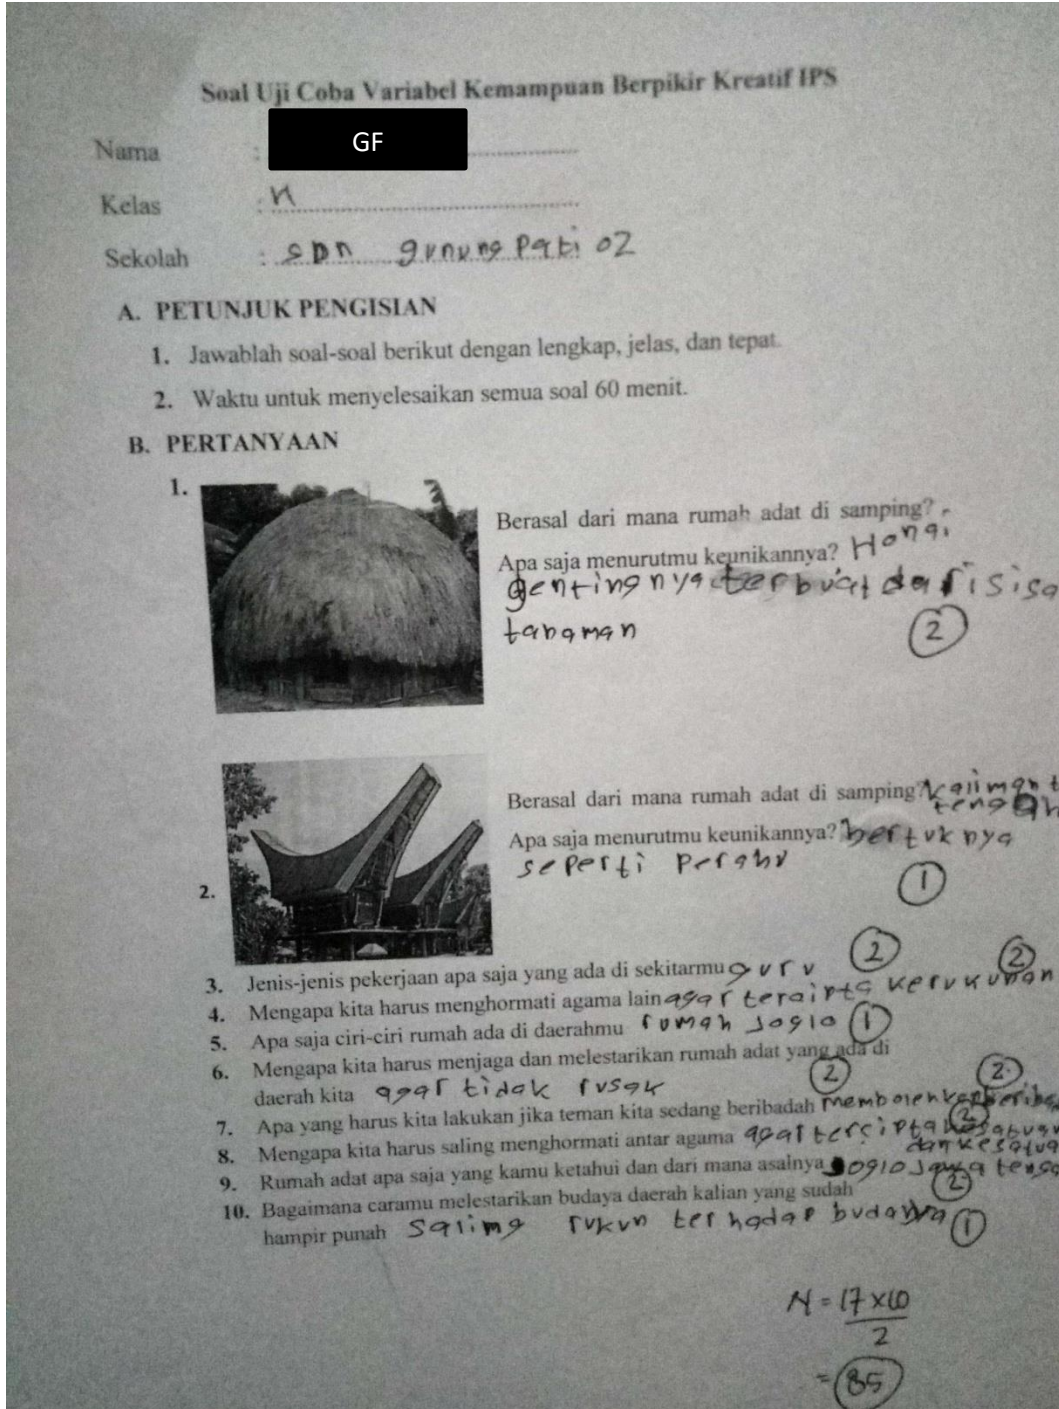 Soal Uji Coba Variabel Kemampuan Berpikir Kreatif IPS
Nama : GF
Kelas :
Sekolah : SDN gunung pati 02
A. PETUNJUK PENGISIAN
1. Jawablah soal-soal berikut dengan lengkap, jelas, dan tepat.
2. Waktu untuk menyelesaikan semua soal 60 menit.
B. PERTANYAAN
1.
Berasal dari mana rumah adat di samping?
Apa saja menurutmu keunikannya? Honai
gentingnya terbuat dari sisa
tanaman
2
Berasal dari mana rumah adat di samping? kalimant
tengah
Apa saja menurutmu keunikannya? bentuknya
seperti perahu
1
2.
3. Jenis-jenis pekerjaan apa saja yang ada di sekitarmu guru 2
4. Mengapa kita harus menghormati agama lain agar tercipta kerukunan 2
5. Apa saja ciri-ciri rumah ada di daerahmu rumah Joglo 1
6. Mengapa kita harus menjaga dan melestarikan rumah adat yang ada di
daerah kita agar tidak rusak 2
7. Apa yang harus kita lakukan jika teman kita sedang beribadah 2
8. Mengapa kita harus saling menghormati antar agama agar tercipta 2
dan
9. Rumah adat apa saja yang kamu ketahui dan dari mana asalnya joglo jawa 2
10. Bagaimana caramu melestarikan budaya daerah kalian yang sudah
hampir punah saling rukun terhadap budaya 1
N = 17 x 10
2
= 85